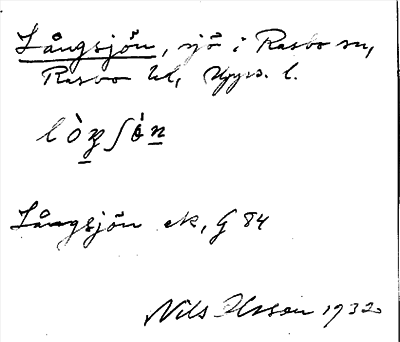 Långsjön, sjö i Rasbo sn,
Rasbo hd, Upps. l.
lòŋʃɵ̀n
Långsjön ek, G 84
Nils Olsson 1932